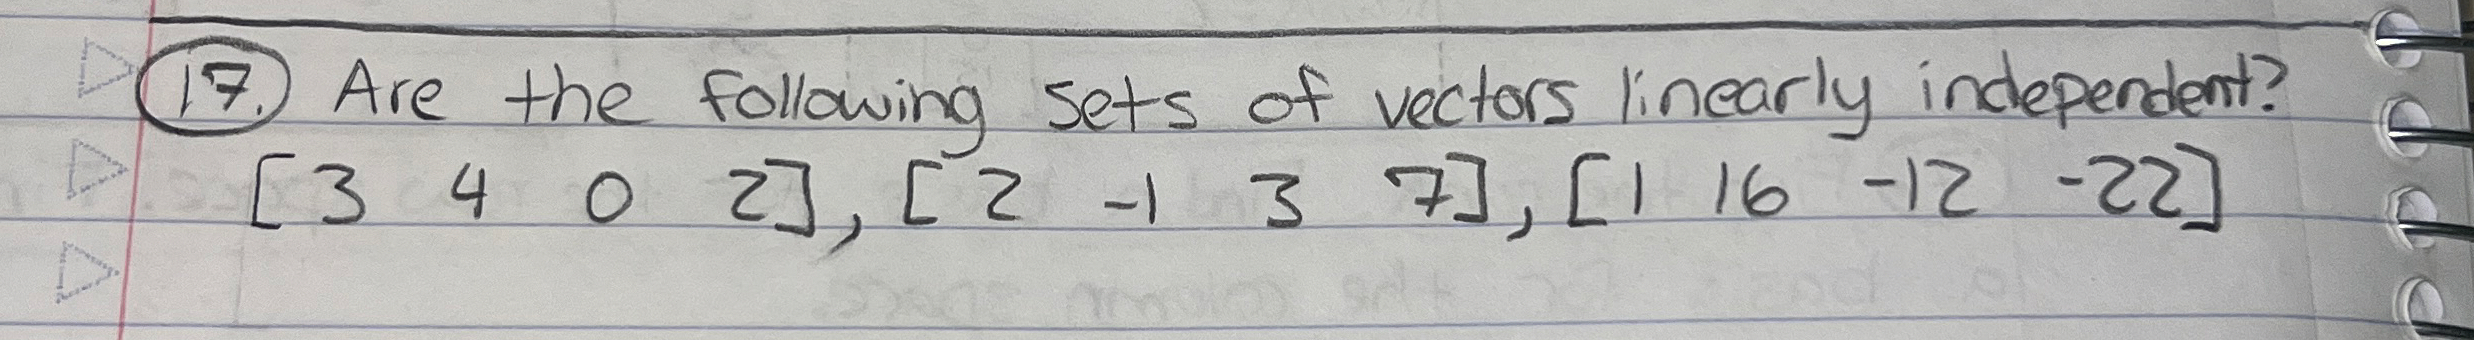 17. Are the following sets of vectors linearly independent?
[3 4 0 2], [2 -1 3 7], [1 16 -12 -22]